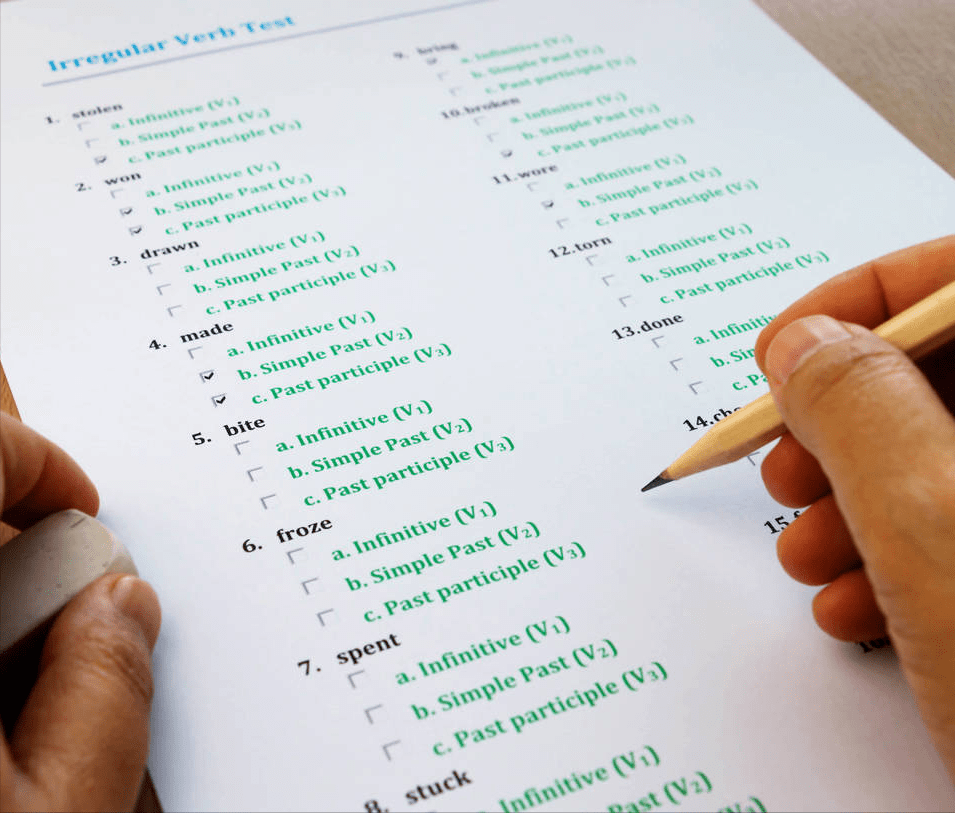 Irregular Verb Test
1. stolen
a. Infinitive (V1)
b. Simple Past (V2)
c. Past participle (V3)
2. won
a. Infinitive (V1)
b. Simple Past (V2)
c. Past participle (V3)
3. drawn
a. Infinitive (V1)
b. Simple Past (V2)
c. Past participle (V3)
4. made
a. Infinitive (V1)
b. Simple Past (V2)
c. Past participle (V3)
5. bite
a. Infinitive (V1)
b. Simple Past (V2)
c. Past participle (V3)
6. froze
a. Infinitive (V1)
b. Simple Past (V2)
c. Past participle (V3)
7. spent
a. Infinitive (V1)
b. Simple Past (V2)
c. Past participle (V3)
8. stuck
Infinitive (V1)
Past (V2)
9. bring
a. Infinitive (V1)
b. Simple Past (V2)
c. Past participle (V3)
10.broken
a. Infinitive (V1)
b. Simple Past (V2)
c. Past participle (V3)
11.wore
a. Infinitive (V1)
b. Simple Past (V2)
c. Past participle (V3)
12.torn
a. Infinitive (V1)
b. Simple Past (V2)
c. Past participle (V3)
13.done
a.
b.
c.
14.
15